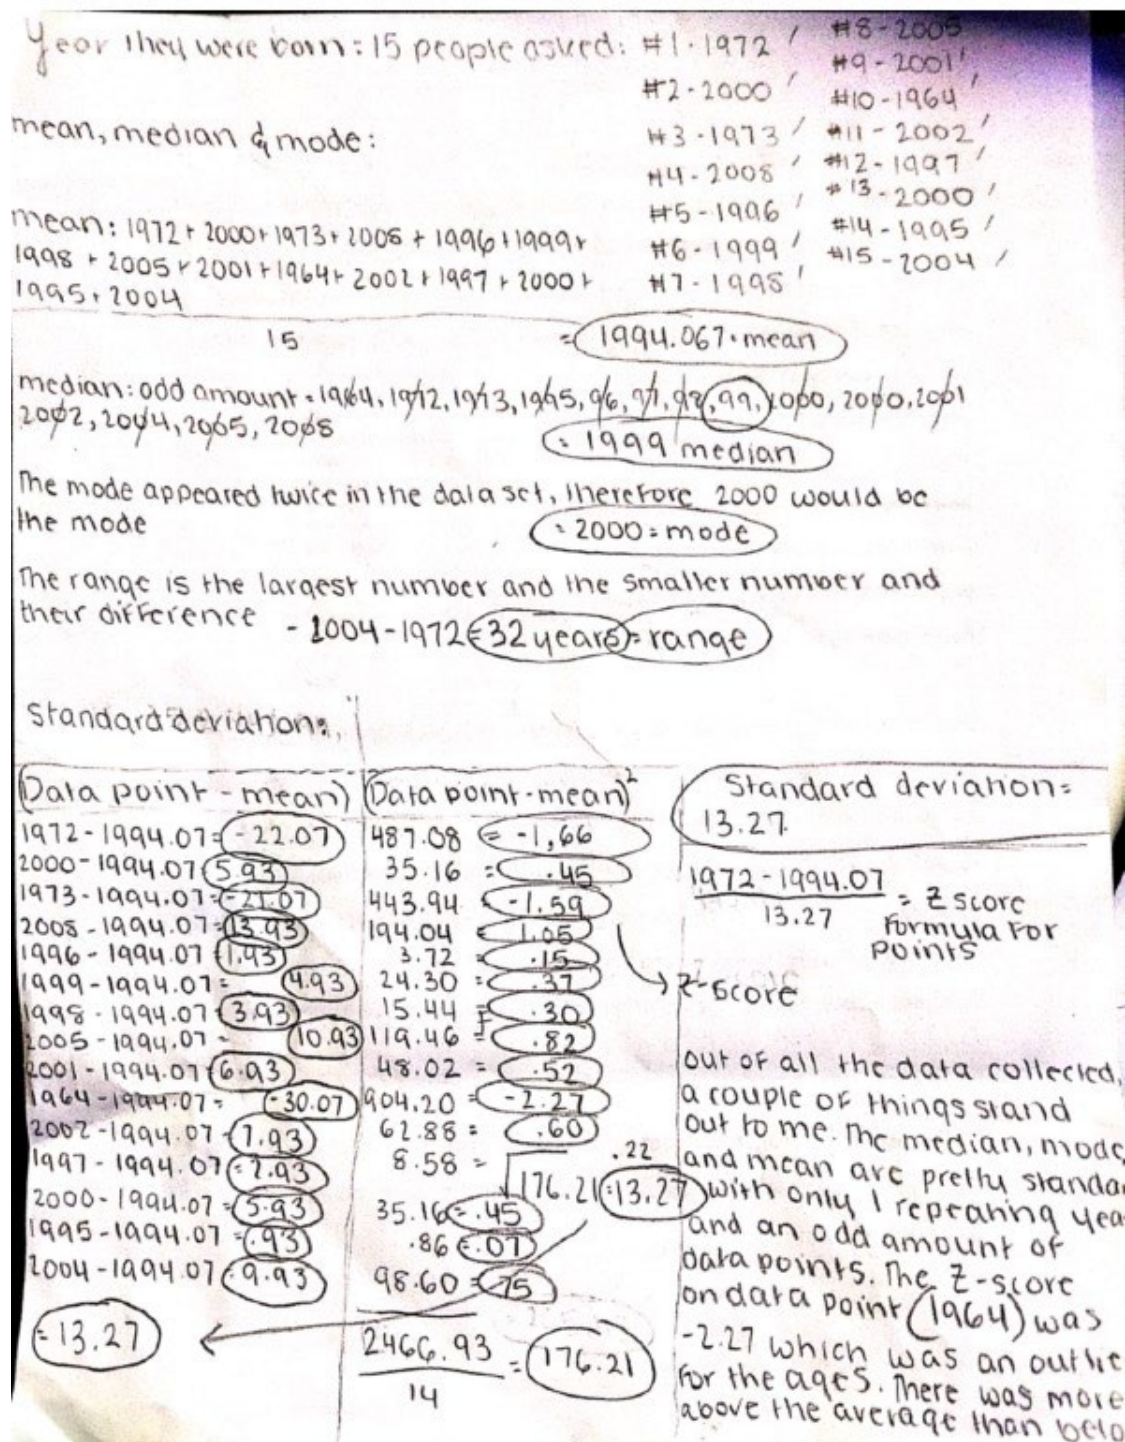 Year they were born: 15 people asked: #1-1972
#2-2000
#3-1973
#4-2008
#5-1996
#6-1999
#7-1998
#8-2005
#9-2001
#10-1964
#11-2002
#12-1997
#13-2000
#14-1995
#15-2004
mean, median & mode:
mean: 1972+2000+1973+2008+1996+1999+
1998+2005+2001+1964+2002+1997+2000+
1995+2004
15
= 1994.067=mean
median: odd amount = 1964, 1972, 1973, 1995, 96, 97, 98, 99, 2000, 2000, 2001
2002, 2004, 2005, 2008
= 1999 median
The mode appeared twice in the data set, therefore 2000 would be
the mode
= 2000 = mode
The range is the largest number and the smaller number and
their difference - 2004-1972 = 32 years = range
Standard deviation:
(Data point - mean)
1972-1994.07= -22.07
2000-1994.07= 5.93
1973-1994.07= -21.07
2008-1994.07= 13.93
1996-1994.07= 1.93
1999-1994.07= 4.93
1998-1994.07= 3.93
2005-1994.07= 10.93
2001-1994.07= 6.93
1964-1994.07= -30.07
2002-1994.07= 7.93
1997-1994.07= 2.93
2000-1994.07= 5.93
1995-1994.07= .93
2004-1994.07= 9.93
= 13.27
(Data point-mean)²
487.08 = -1,66
35.16 = .45
443.94 = -1.59
194.04 = 1.05
3.72 = .15
24.30 = .37
15.44 = .30
119.46 = .82
48.02 = .52
904.20 = -2.27
62.88 = .60
8.58 = .22
√176.21 = 13.27
35.16 = .45
.86 = .07
98.60 = .75
2466.93
14
= 176.21
Standard deviation=
13.27
1972-1994.07
13.27
= Z score
formula for
points
Z-score
out of all the data collected,
a couple of things stand
out to me. The median, mode,
and mean are pretty standa
with only 1 repeating yea
and an odd amount of
data points. The Z-score
on data point (1964) was
-2.27 which was an outlie
for the ages. There was more
above the average than belo